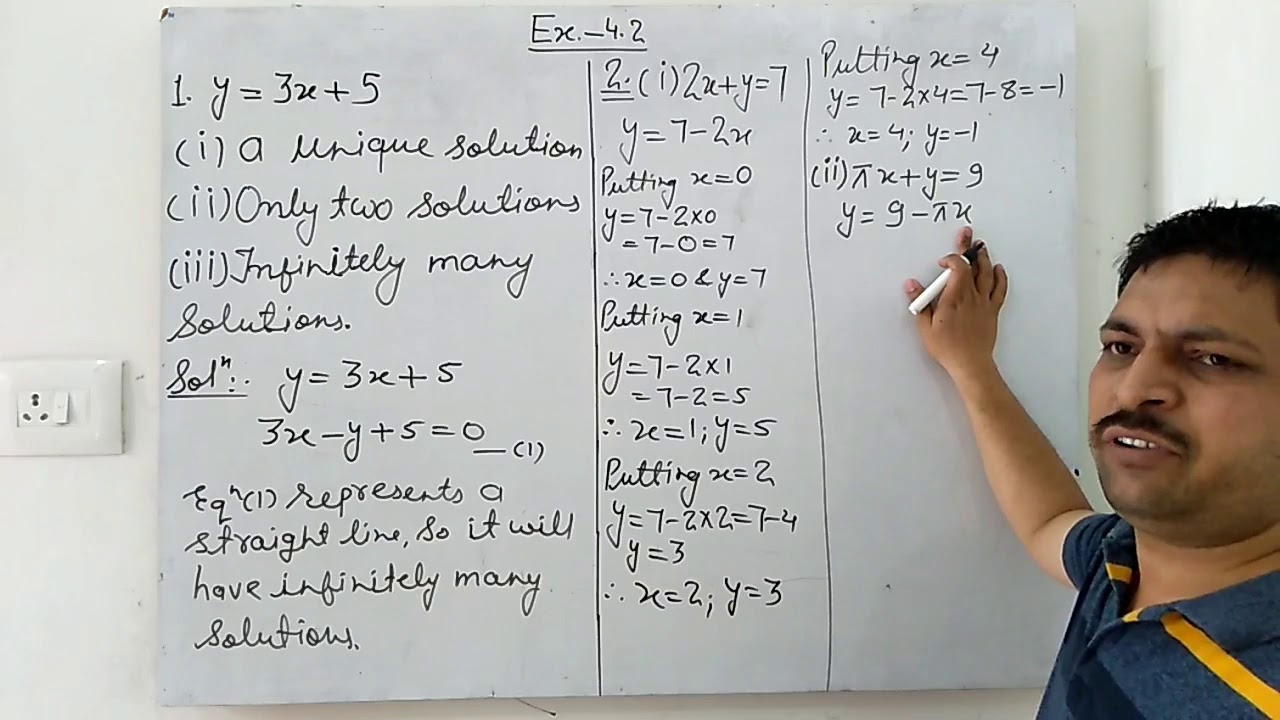 Ex.-4.2
1. y = 3x+5
(i) a unique solution
(ii) Only two solutions
(iii) Infinitely many
Solutions.
Solⁿ:- y = 3x+5
3x-y+5=0 _(1)
Eqⁿ(1) represents a
straight line, so it will
have infinitely many
solutions.
2. (i) 2x+y=7
y=7-2x
Putting x=0
y=7-2×0
=7-0=7
∴ x=0 & y=7
Putting x=1
y=7-2×1
=7-2=5
∴ x=1; y=5
Putting x=2
y=7-2×2=7-4
y=3
∴ x=2; y=3
Putting x=4
y=7-2×4=7-8=-1
∴ x=4; y=-1
(ii) πx+y=9
y=9-πx